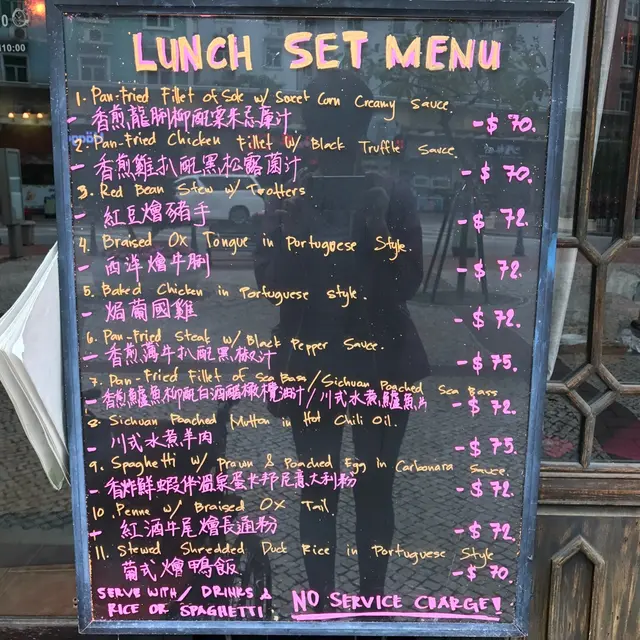 LUNCH SET MENU
1. Pan-Fried Fillet of Sole w/ Sweet Corn Creamy Sauce.
- 香煎龍脷柳配粟米忌廉汁 - $ 70.
2. Pan-Fried Chicken Fillet w/ Black Truffle Sauce.
- 香煎雞扒配黑松露菌汁 - $ 70.
3. Red Bean Stew w/ Trotters
- 紅豆燴豬手 - $ 72.
4. Braised Ox Tongue in Portuguese Style.
- 西洋燴牛脷 - $ 72.
5. Baked Chicken in Portuguese style.
- 焗葡國雞 - $ 72.
6. Pan-Fried Steak w/ Black Pepper Sauce.
- 香煎薄牛扒配黑椒汁 - $ 75.
7. Pan-Fried Fillet of Sea Bass/Sichuan Poached Sea Bass
- 香煎鱸魚柳配白酒醋橄欖油汁/川式水煮鱸魚片 - $ 72.
8. Sichuan Poached Mutton in Hot Chili Oil.
- 川式水煮羊肉 - $ 75.
9. Spaghetti w/ Prawn & Poached Egg In Carbonara Sauce.
- 香炸鮮蝦伴溫泉蛋卡邦尼意大利粉 - $ 72.
10 Penne w/ Braised OX Tail.
- 紅酒牛尾燴長通粉 - $ 72.
11. Stewed Shredded Duck Rice in Portuguese Style
葡式燴鴨飯 - $ 70
SERVE WITH/ DRINKS &
RICE OR SPAGHETTI
NO SERVICE CHARGE!